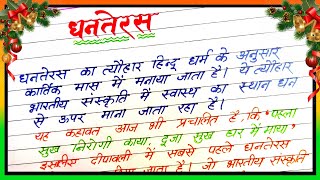 धनतेरस
धनतेरस का त्यौहार हिन्दू धर्म के अनुसार
कार्तिक मास में मनाया जाता है। ये त्यौहार
भारतीय संस्कृति में स्वास्थ का स्थान धन
से ऊपर माना जाता रहा है।
यह कहावत आज भी प्रचलित है, कि "पहला
सुख निरोगी काया, दूजा सुख घर में माया"
इसलिए दीपावली में सबसे पहले धनतेरस
जाता है। जो भारतीय संस्कृति